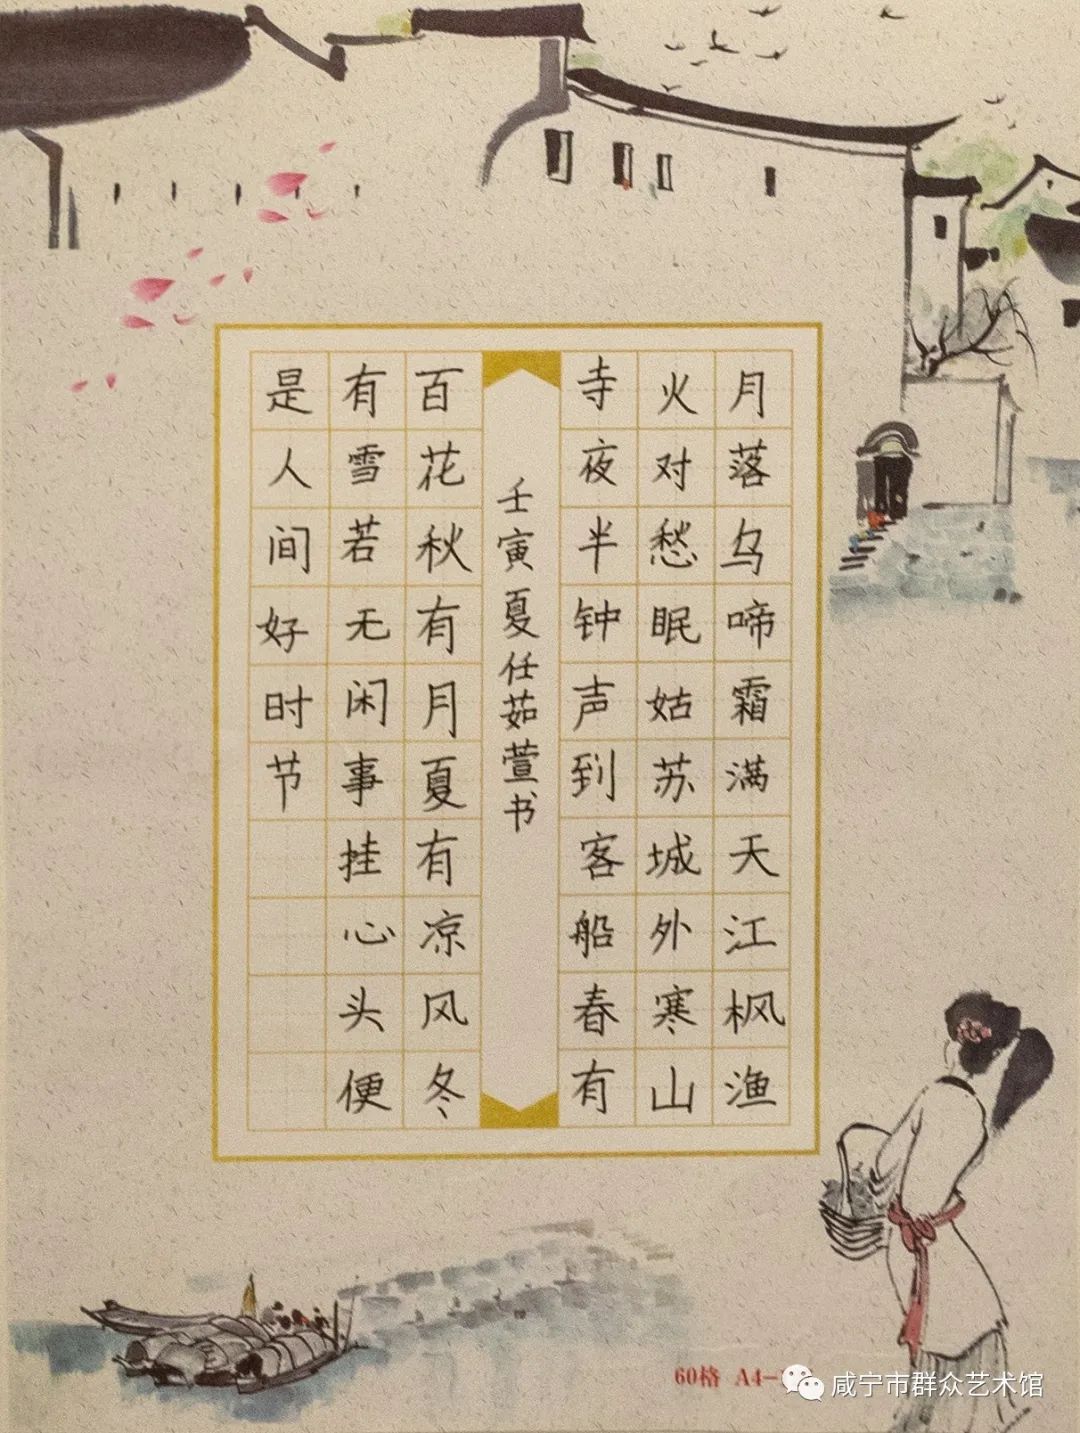 月落乌啼霜满天江枫渔
火对愁眠姑苏城外寒山
寺夜半钟声到客船春有
壬寅夏任茹萱书
百花秋有月夏有凉风冬
有雪若无闲事挂心头便
是人间好时节
60格 A4-
咸宁市群众艺术馆